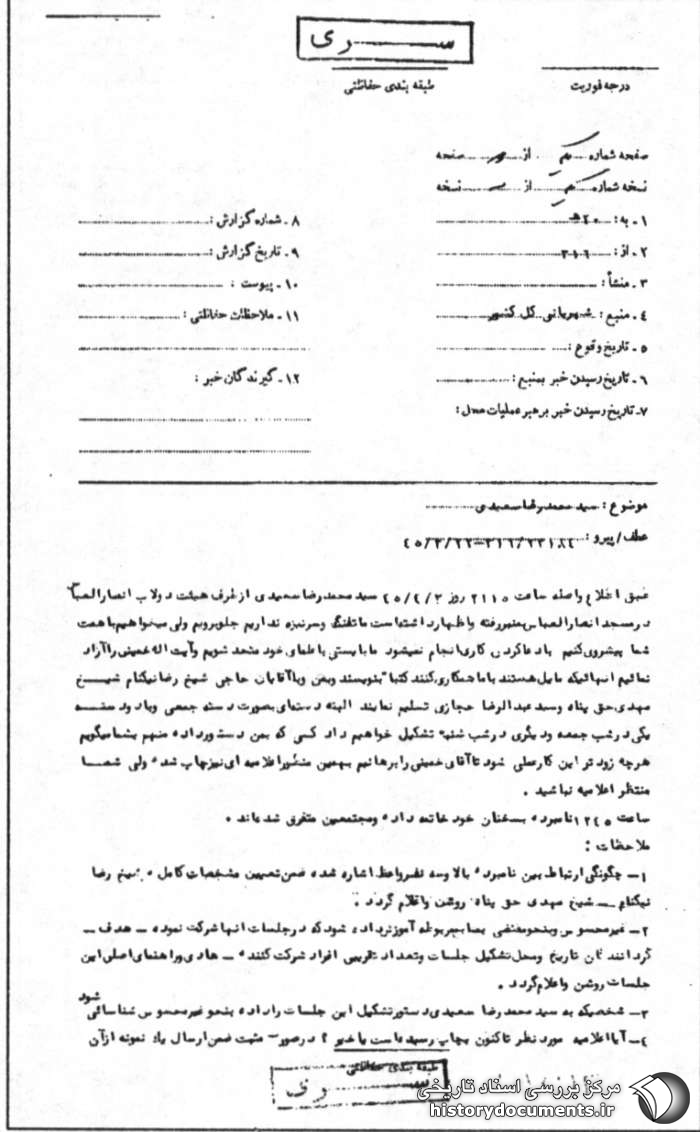 ســـری
طبقه بندی حفاظتی
درجه فوریت
صفحه شماره یکم از صفحه
نسخه شماره یکم از نسخه
۱ـ به: ۲۰هـ
۲ـ از: ۳۱۶
۳ـ منشأ:
۴ـ منبع: شهربانی کل کشور
۵ـ تاریخ وقوع:
۶ـ تاریخ رسیدن خبر بمنبع:
۷ـ تاریخ رسیدن خبر برهبر عملیات محل:
۸ـ شماره گزارش:
۹ـ تاریخ گزارش:
۱۰ـ پیوست:
۱۱ـ ملاحظات حفاظتی:
۱۲ـ گیرندگان خبر:
موضوع: سید محمدرضا سعیدی
عطف/پیرو: ۳۱۶/۲۳۱۸۴ــ۴۵/۳/۲۲
طبق اطلاع واصله ساعت ۲۱۱۵ روز ۴۵/۴/۲ سید محمدرضا سعیدی از طرف هیئت دولاب انصارالعباس
در مسجد انصارالعباس بمنبر رفته و اظهار داشته است ما تفنگ و سرنیزه نداریم جلو برویم ولی میخواهیم با همت
شما پیشروی کنیم با دعا کردن کاری انجام نمیشود ما بایستی با علمای خود متحد شویم و آیت اله خمینی را آزاد
نمائیم آنهائیکه مایل هستند با ما همکاری کنند کتبا" بنویسند و بمن و یا آقایان حاجی شیخ رضا نیکنام شیـــخ
مهدی حق پناه و سید عبدالرضا حجازی تسلیم نمایند البته دسته‌ای بصورت دسته جمعی و یا دو دستـــه
یکی در شب جمعه و دیگری در شب شنبه تشکیل خواهیم داد کسی که بمن دستور داده منهم بشما میگویم
هرچه زودتر این کار عملی شود تا آقای خمینی را برهانیم بهمین منظور اعلامیه ای نیز چاپ شده ولی شمـــا
منتظر اعلامیه نباشید .
ساعت ۱۲۴۵ نامبرده بسخنان خود خاتمه داده و مجتمعین متفرق شده‌اند .
ملاحظات :
۱ـ چگونگی ارتباط بین نامبرده بالا و سه نفر واعظ اشاره شده ضمن تعیین مشخصات کامل شیخ رضا
نیکنام ــ شیخ مهدی حق پناه روشن و اعلام گردد .
۲ـ غیرمحسوس و بنحو مقتضی بمنابع مربوطه آموزش داده شود که در جلسات آنها شرکت نموده ــ هدف ــ
گردانندگان تاریخ و محل تشکیل جلسات و تعداد تقریبی افراد شرکت کننده ــ هادی و راهنمای اصلی این
جلسات روشن و اعلام گردد .
۳ـ شخصیکه به سید محمدرضا سعیدی دستور تشکیل این جلسات را داده بنحو غیرمحسوس شناسائی شود
۴ـ آیا اعلامیه مورد نظر تاکنون بچاپ رسیده است یا خیر ؟ در صورت مثبت ضمن ارسال یک نمونه از آن
طبقه بندی حفاظتی
ســـری
مرکز بررسی اسناد تاریخی
historydocuments.ir